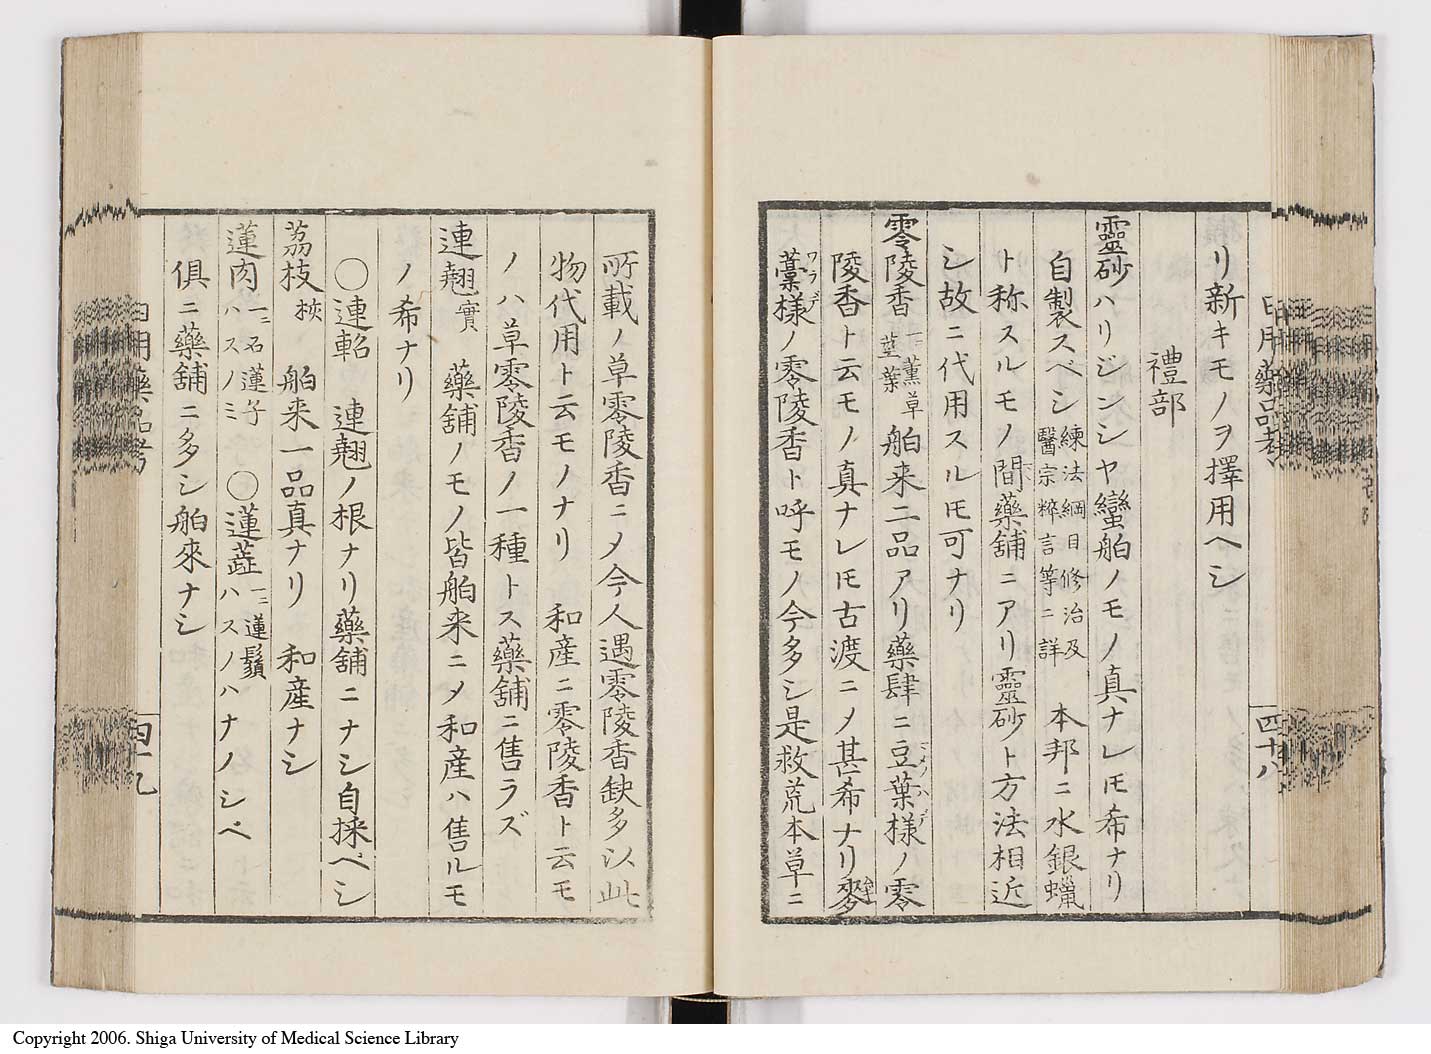 リ新キモノヲ擇用ヘシ
禮部
靈砂ハリジンシヤ蠻船ノモノ真ナレ𪜈希ナリ
自製スベシ 練法綱目修治及醫宗粹言等ニ詳 本邦ニ水銀蠟
ト称スルモノ間藥舖ニアリ靈砂ト方法相近
シ故ニ代用スル𪜈可ナリ
零陵香 一ニ薫草 莖葉 舶来二品アリ藥肆ニ豆葉様ノ零
陵香ト云モノ真ナレ𪜈古渡ニメ甚希ナリ麥
藁様ノ零陵香ト呼モノ今多シ是救荒本草ニ
日用藥品考
四十八
所載ノ草零陵香ニメ今人遇零陵香缺多以此
物代用ト云モノナリ 和産ニ零陵香ト云モ
ノハ草零陵香ノ一種トス藥舖ニ售ラズ
連翹 實 藥舖ノモノ皆舶来ニメ和産ハ售ルモ
ノ希ナリ
〇連軺 連翹ノ根ナリ藥舖ニナシ自採ベシ
荔枝 核 舶来一品真ナリ 和産ナシ
蓮肉 一ニ名蓮子 ハスノミ 〇蓮蕋 一ニ蓮鬚 ハスノハナノシベ
俱ニ藥舖ニ多シ舶來ナシ
日用藥品考
四十九
Copyright 2006. Shiga University of Medical Science Library